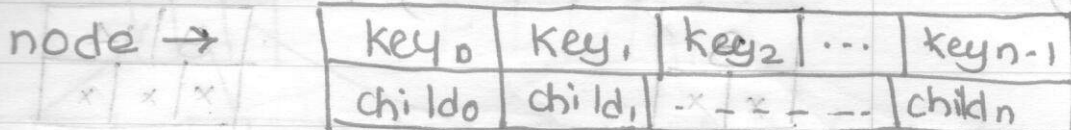 node → key₀ key₁ key₂ ... key n-1
child₀ child₁ - - - - - -- child n